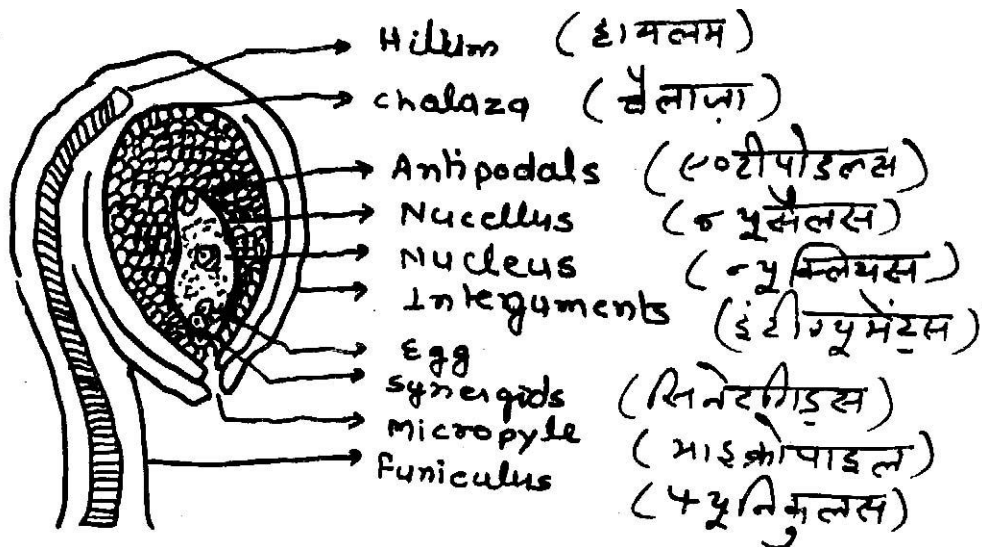 Hilum (हायलम)
chalaza (चैलाज़ा)
Antipodals (एण्टीपोडल्स)
Nucellus (न्यूसैलस)
Nucleus (न्यूक्लियस)
Integuments (इंटीग्यूमेंट्स)
Egg
Synergids (सिनेरगिड्स)
Micropyle (माइक्रोपाइल)
Funiculus (फ्यूनिकुलस)